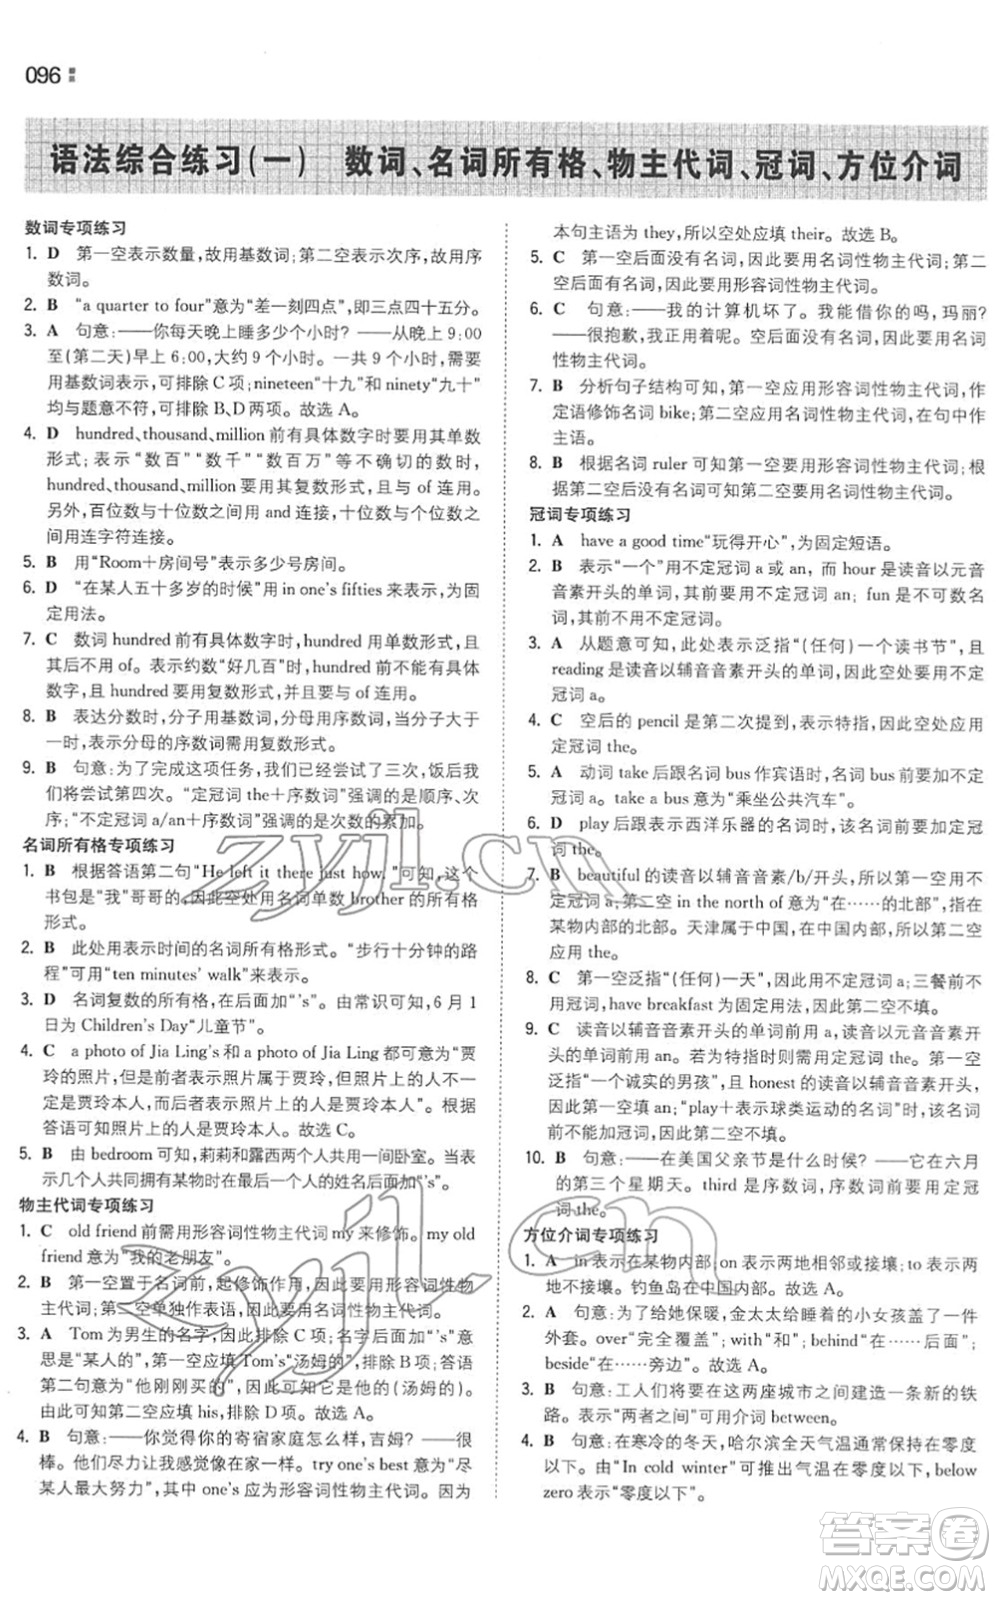 096
语法综合练习(一) 数词、名词所有格、物主代词、冠词、方位介词
数词专项练习
1. D 第一空表示数量,故用基数词;第二空表示次序,故用序
数词。
2. B “a quarter to four”意为“差一刻四点”,即三点四十五分。
3. A 句意:——你每天晚上睡多少个小时? ——从晚上 9:00
至(第二天)早上 6:00,大约 9 个小时。一共 9 个小时,需要
用基数词表示,可排除 C 项;nineteen“十九”和 ninety“九十”
均与题意不符,可排除 B、D 两项。故选 A。
4. D hundred、thousand、million 前有具体数字时要用其单数
形式;表示“数百”“数千”“数百万”等不确切的数时,
hundred、thousand、million 要用其复数形式,且与 of 连用。
另外,百位数与十位数之间用 and 连接,十位数与个位数之
间用连字符连接。
5. B 用“Room+房间号”表示多少号房间。
6. D “在某人五十多岁的时候”用 in one's fifties 表示,为固
定用法。
7. C 数词 hundred 前有具体数字时,hundred 用单数形式,且
其后不用 of。表示约数“好几百”时,hundred 前不能有具体
数字,且 hundred 要用复数形式,并与 of 连用。
8. B 表达分数时,分子用基数词,分母用序数词,当分子大于
一时,表示分母的序数词需用复数形式。
9. B 句意:为了完成这项任务,我们已经尝试了三次,饭后我
们将尝试第四次。“定冠词 the+序数词”强调的是顺序、次
序;“不定冠词 a/an+序数词”强调的是次数的累加。
名词所有格专项练习
1. B 根据答语第二句“He left it there just now.”可知,这个
书包是“我”哥哥的,因此空处用名词单数 brother 的所有格
形式。
2. B 此处用表示时间的名词所有格形式。“步行十分钟的路
程”可用“ten minutes' walk”来表示。
3. D 名词复数的所有格,在后面加“'s”。由常识可知,6 月 1
日为 Children's Day“儿童节”。
4. C a photo of Jia Ling's 和 a photo of Jia Ling 都可意为“贾
玲的照片”,但是前者表示照片属于贾玲,照片上的人不一定
是贾玲本人,而后者表示照片上的人是贾玲本人。根据
答语可知,照片上的人是贾玲本人。故选 C。
5. B 由 bedroom 可知,莉莉和露西两人同一间卧室。当表
示几个人共同拥有某物时只在最后一个人的姓名后加“'s”。
物主代词专项练习
1. C old friend 前需用形容词性物主代词 my 来修饰。my old
friend 意为“我的老朋友”。
2. B 第一空置于名词前,起修饰作用,因此要用形容词性物
主代词;第二空单独作表语,因此要用名词性物主代词。
3. A Tom 为男生的名字,因此排除 C 项;名字后面加“'s”意
思是“某人的”,因此第一空应填 Tom's“汤姆的”,排除 B 项;答语
第二句句意为“他刚刚买的”,且指代 his bike(汤姆的)。
4. B 句意:——你觉得你的寄宿家庭怎么样,吉姆? ——很
棒。他们尽力让我感觉像在家一样。try one's best 意为“尽
某人最大努力”,其中 one's 应为形容词性物主代词。因为
本句主语为 they,所以空处应填 their。故选 B。
5. C 第一空后面没有名词,因此要用名词性物主代词;第二
空后面有名词,因此要用形容词性物主代词。
6. C 句意:——我的计算机坏了。我能借你的吗,玛丽?
——很抱歉,我正在用。空后没有名词,因此要用名词
性物主代词。
7. B 分析句子结构可知,第一空应用形容词性物主代词,作
定语修饰名词 bike;第二空应用名词性物主代词,在句中作
主语。
8. B 根据名词 ruler 可知第一空要用形容词性物主代词;根
据第二空后没有名词可知第二空要用名词性物主代词。
冠词专项练习
1. A have a good time“玩得开心”,为固定短语。
2. B 表示“一个”用不定冠词 a 或 an,而 hour 是读音以元音
音素开头的单词,其前要用不定冠词 an; fun 是不可数名
词,其前不用不定冠词。
3. A 从题意可知,此处表示泛指“(任何)一个读书节”,且
reading 是读音以辅音音素开头的单词,因此空处要用不定
冠词 a。
4. C 空后的 pencil 是第二次提到,表示特指,因此空处应用
定冠词 the。
5. A 动词 take 后跟名词 bus 作宾语时,名词 bus 前要加不定
冠词 a。take a bus 意为“乘坐公共汽车”。
6. D play 后跟表示西洋乐器的名词时,该名词前应加定冠
词 the。
7. B beautiful 的读音以辅音音素/b/开头,因此第一空用不
定冠词 a,第二空 in the north of 意为“在……的北部”,指在
某物内部的北部。天津属于中国,在中国内部,所以第二空
应用 the。
8. C 第一空泛指“(任何)一天”,因此用不定冠词 a;三餐前不
用冠词,have breakfast 为固定用法,因此第二空不填。
9. C 读音以辅音音素开头的单词前用 a,读音以元音音素开
头的单词前用 an。若为特指则要用定冠词 the。第一空
泛指“一个诚实的男孩”,且 honest 的读音以辅音音素开头,
因此第一空填 an;“play+表示球类运动的名词”时,该名词
前不能加冠词,故第二空不填。
10. B 句意:——在美国父亲节是什么时候? ——它在六月
的第三个星期天。third 是序数词,序数词前面应加定冠
词 the。
方位介词专项练习
1. A in 表示在某物内部,on 表示两地相邻或接壤;to 表示两
地不接壤。钓鱼岛在中国内部。故选 A。
2. A 句意:为了给她保暖,金太太给熟睡的小女孩盖了一件
外套。over“完全覆盖”;with“和”;behind“在……后面”;
beside“在……旁边”。故选 A。
3. B 句意:工人们将要在这两座城市之间建造一条新的铁
路。表示“两者之间”可用介词 between。
4. B 句意:在寒冷的冬天,哈尔滨全天气温通常保持在零度
以下。由“In cold winter”可推出气温在零度以下,below
zero 表示“零度以下”。
zyjl.cn
zyjl.cn
答案卷
MXQE.COM